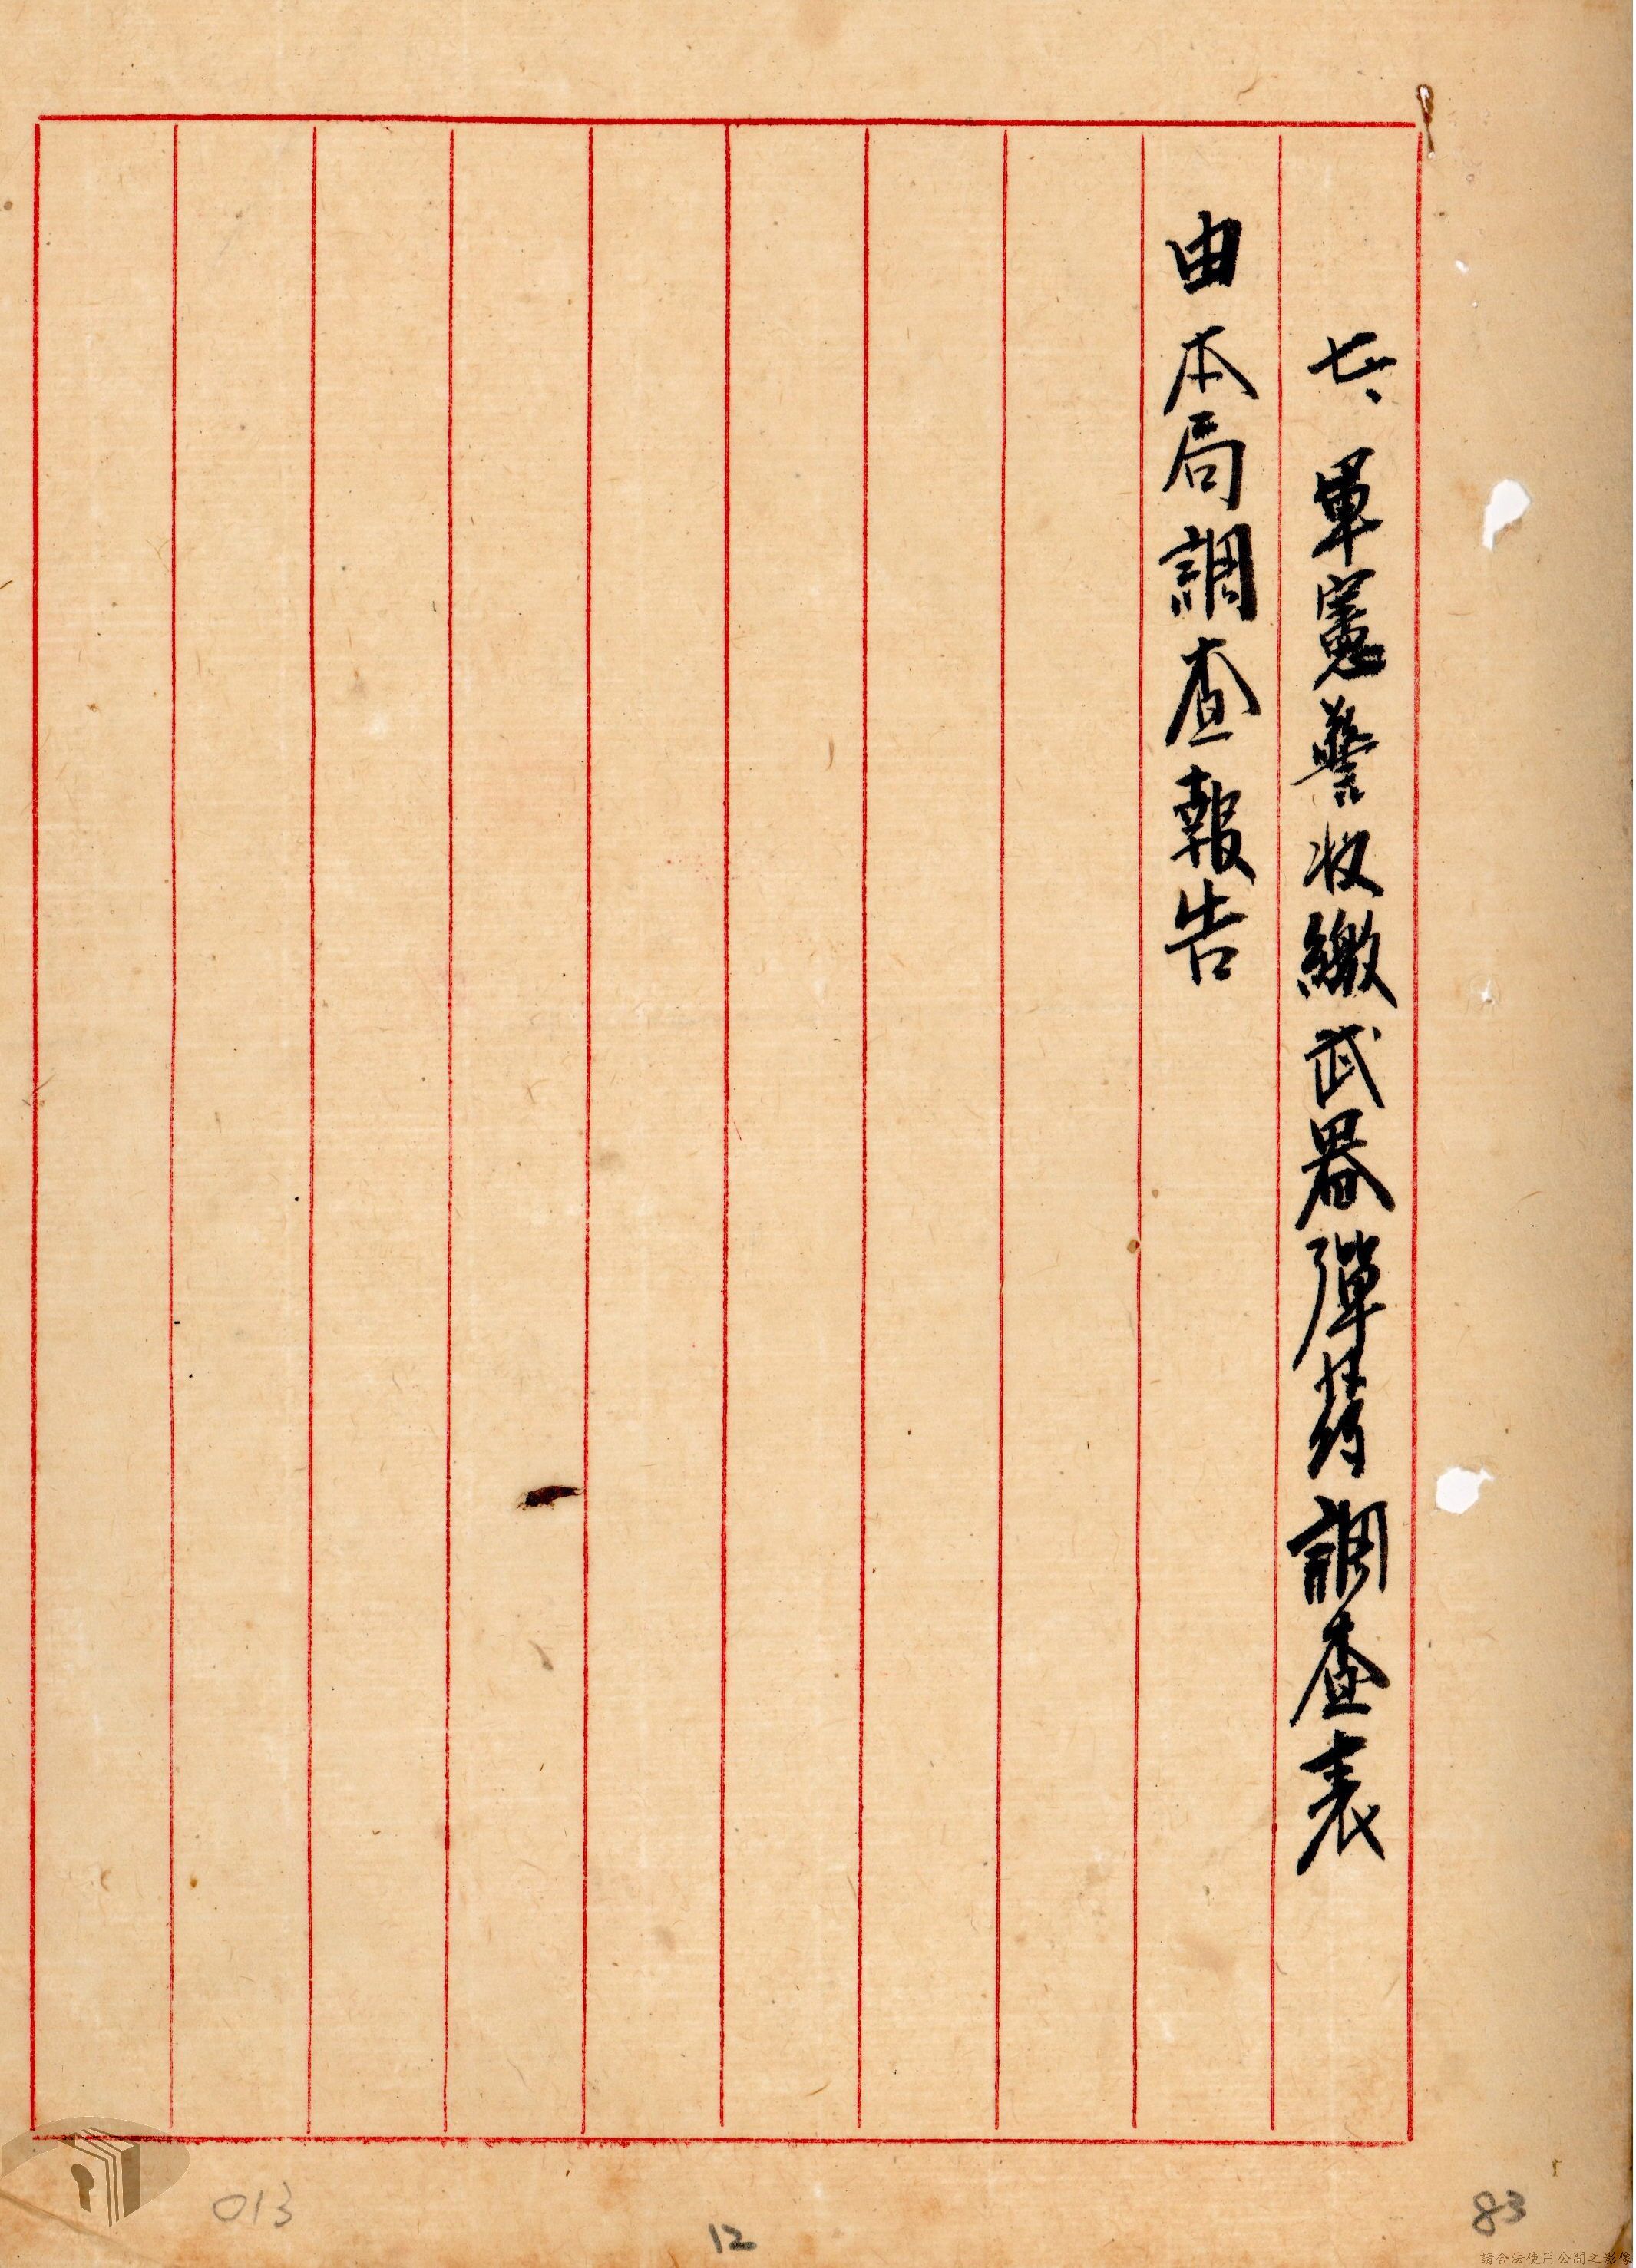 七、軍憲警收繳武器彈葯調查表
由本局調查報告
013
12
83
請合法使用公開之影像